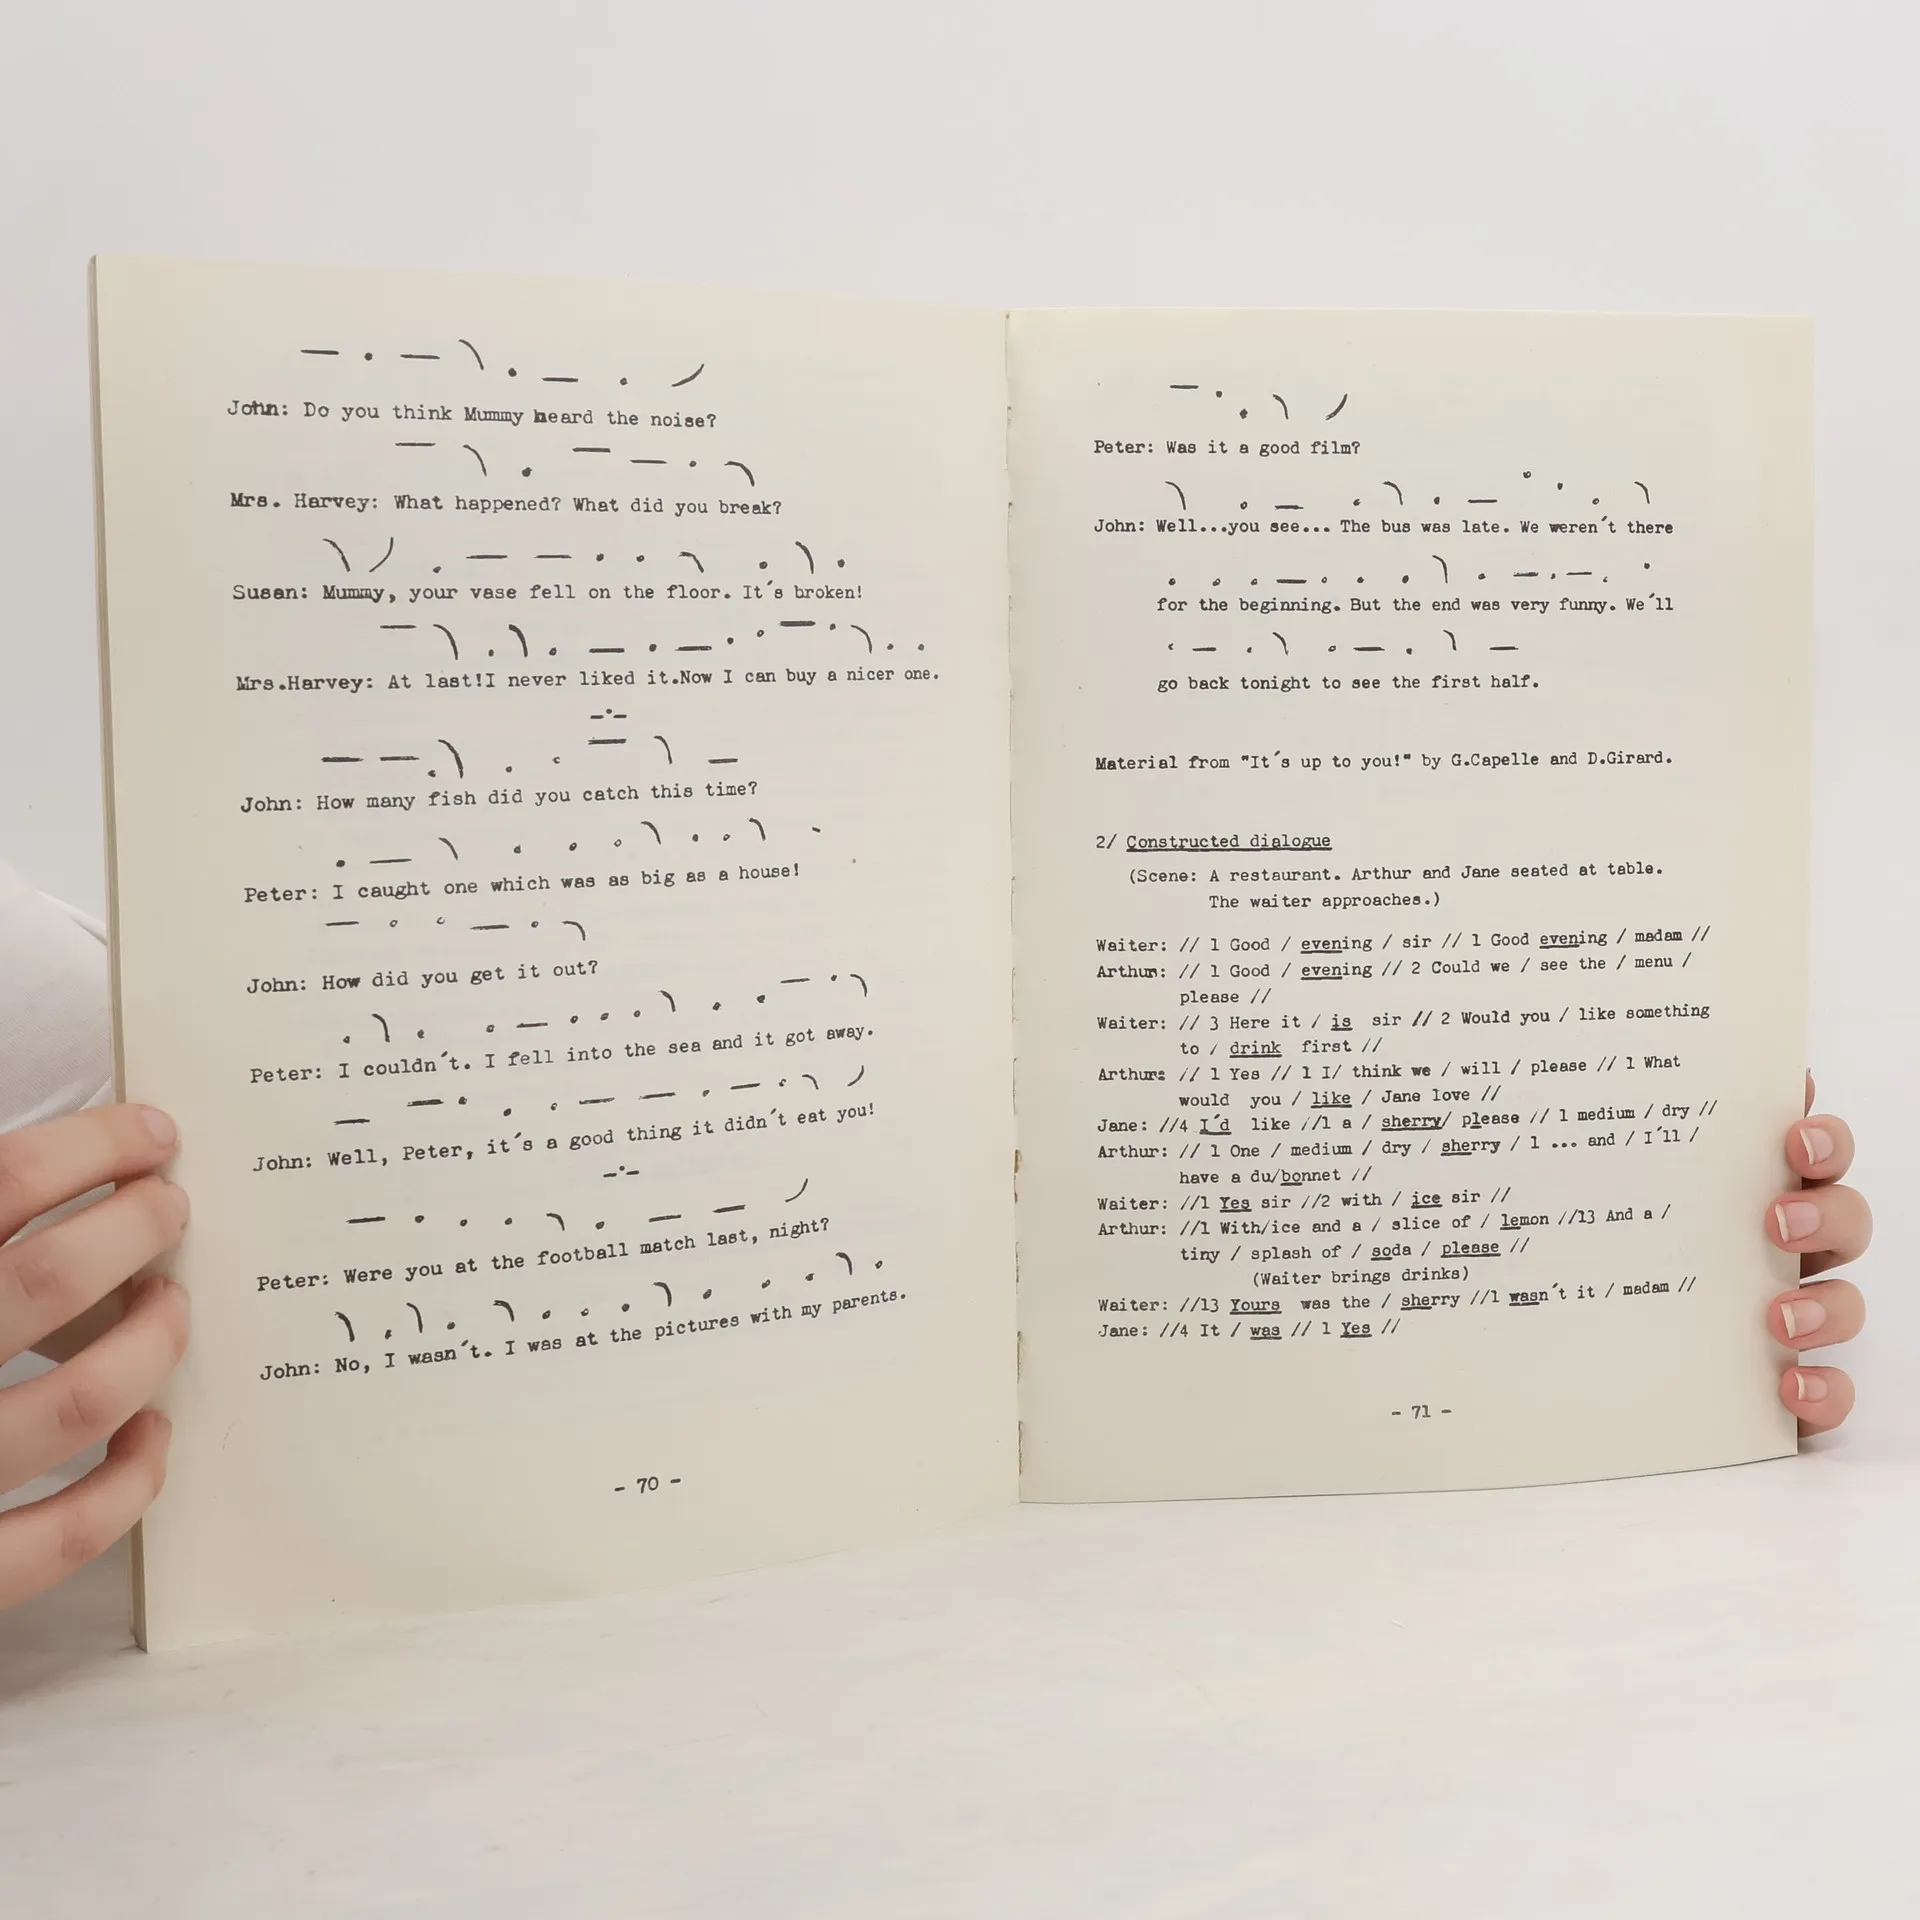 John: Do you think Mummy heard the noise?
Mrs. Harvey: What happened? What did you break?
Susan: Mummy, your vase fell on the floor. It´s broken!
Mrs.Harvey: At last!I never liked it.Now I can buy a nicer one.
-·-
John: How many fish did you catch this time?
Peter: I caught one which was as big as a house!
John: How did you get it out?
Peter: I couldn´t. I fell into the sea and it got away.
John: Well, Peter, it´s a good thing it didn´t eat you!
-·-
Peter: Were you at the football match last, night?
John: No, I wasn´t. I was at the pictures with my parents.
- 70 -
Peter: Was it a good film?
John: Well...you see... The bus was late. We weren´t there
for the beginning. But the end was very funny. We´ll
go back tonight to see the first half.
Material from "It´s up to you!" by G.Capelle and D.Girard.
2/ Constructed dialogue
(Scene: A restaurant. Arthur and Jane seated at table.
The waiter approaches.)
Waiter: // 1 Good / evening / sir // 1 Good evening / madam //
Arthur: // 1 Good / evening // 2 Could we / see the / menu /
please //
Waiter: // 3 Here it / is sir // 2 Would you / like something
to / drink first //
Arthur: // 1 Yes // 1 I/ think we / will / please // 1 What
would you / like / Jane love //
Jane: //4 I´d like //1 a / sherry/ please // 1 medium / dry //
Arthur: // 1 One / medium / dry / sherry / 1 ... and / I´ll /
have a du/bonnet //
Waiter: //1 Yes sir //2 with / ice sir //
Arthur: //1 With/ice and a / slice of / lemon //13 And a /
tiny / splash of / soda / please //
(Waiter brings drinks)
Waiter: //13 Yours was the / sherry //1 wasn´t it / madam //
Jane: //4 It / was // 1 Yes //
- 71 -